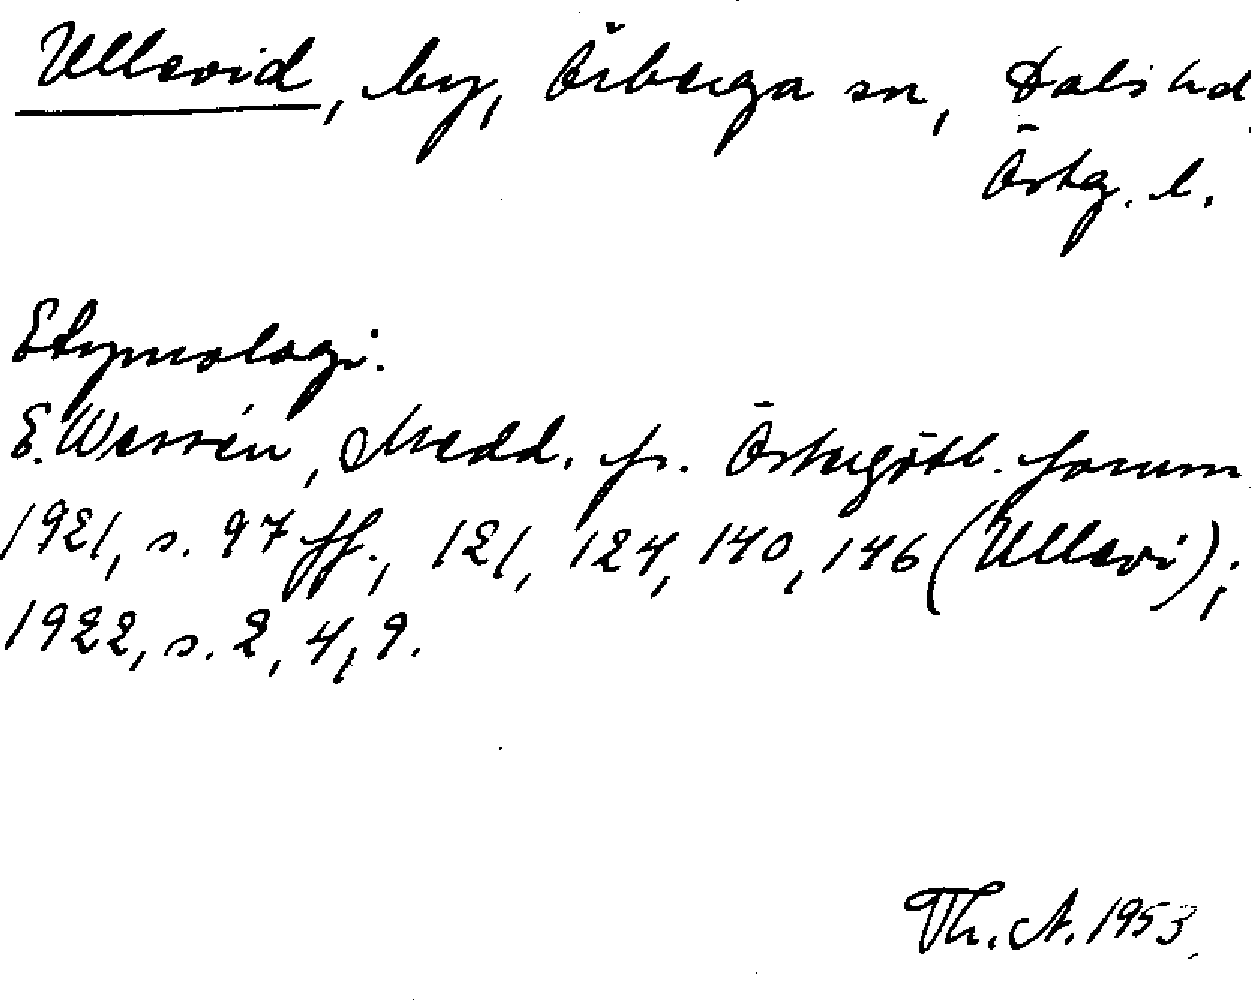 Ullevid, by, Örberga sn, Dals hd
Östg. l.
Etymologi.
E. Wessén, Medd. fr. Östergötl. fornm
1921, s. 97 ff., 121, 124, 140, 146 (Ullevi);
1922, s. 2, 4, 9.
Th. A. 1953.